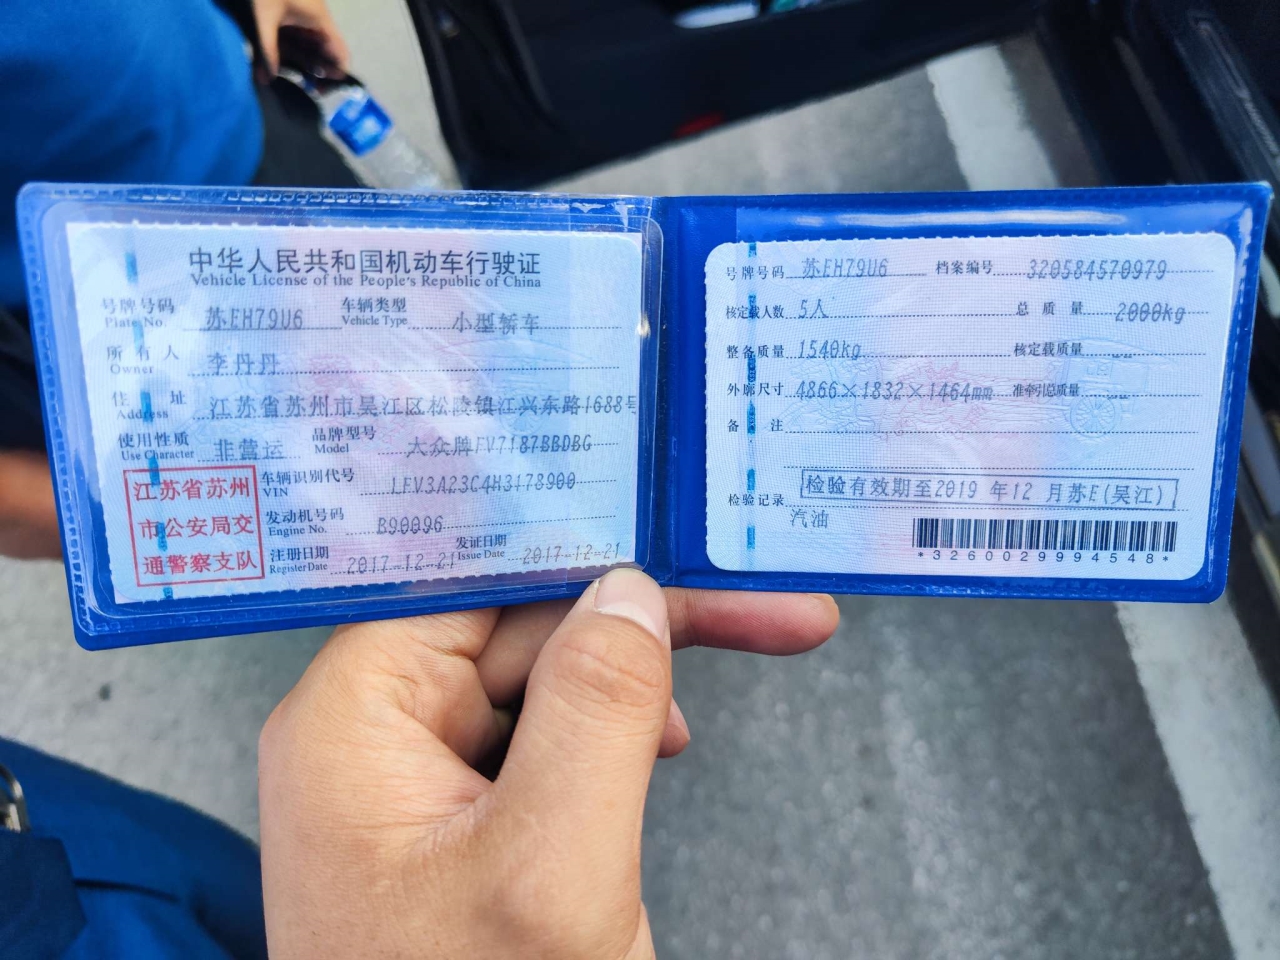 中华人民共和国机动车行驶证
Vehicle License of the People's Republic of China
号牌号码 苏EH79U6 车辆类型 小型轿车
Plate No. Vehicle Type
所有人 李丹丹
Owner
住址 江苏省苏州市吴江区松陵镇江兴东路1688号
Address
使用性质 非营运 品牌型号 大众牌FV7187BBDBG
Use Character Model
江苏省苏州
市公安局交
通警察支队
车辆识别代号 LFV3A23C4H3178900
VIN
发动机号码 B90096
Engine No.
注册日期 2017-12-21 发证日期 2017-12-21
Register Date Issue Date
号牌号码 苏EH79U6 档案编号 320584570979
核定载人数 5人 总质量 2000kg
整备质量 1540kg 核定载质量 --
外廓尺寸 4866×1832×1464mm 准牵引总质量 --
备注
检验记录 检验有效期至2019 年12 月苏E(吴江)
汽油
*3260029994548*